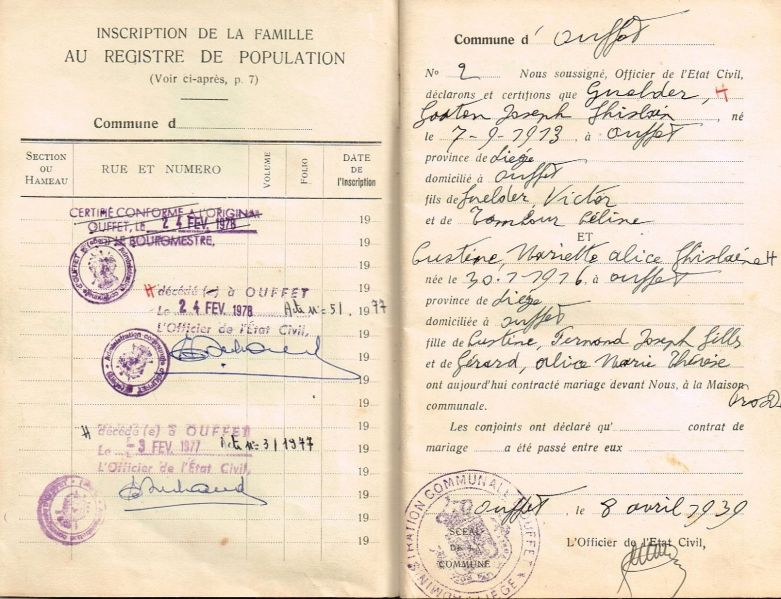 INSCRIPTION DE LA FAMILLE
AU REGISTRE DE POPULATION
(Voir ci-après, p. 7)
Commune d
SECTION OU HAMEAU
RUE ET NUMERO
VOLUME
FOLIO
DATE DE l'Inscription
19
CERTIFIÉ CONFORME A L'ORIGINAL
19
OUFFET, LE 24 FEV. 1978
LE BOURGMESTRE,
19
19
H décédé (e) à OUFFET
19
Le 24 FEV. 1978 Acte n° 5/1977
19
L'Officier de l'État Civil,
19
19
19
19
H décédé (e) à OUFFET
19
Le -3 FEV. 1977 Acte n° 3/1977
19
L'Officier de l'État Civil,
19
19
19
Commune d' Ouffet
N° 2 Nous soussigné, Officier de l'Etat Civil,
déclarons et certifions que Guelder, H
Gaston Joseph Ghislain, né
le 7-9-1913, à Ouffet
province de Liège
domicilié à Ouffet
fils de Guelder, Victor
et de Tambour Céline
ET
Custine, Mariette Alice Ghislaine H
née le 30.1-1916, à Ouffet
province de Liège
domiciliée à Ouffet
fille de Custine, Fernand Joseph
et de Gérard, Alice Marie Thérèse
ont aujourd'hui contracté mariage devant Nous, à la Maison
communale.
Les conjoints ont déclaré qu' contrat de
mariage a été passé entre eux
Ouffet, le 8 avril 1939
L'Officier de l'Etat Civil,
SCEAU
DE LA
COMMUNE